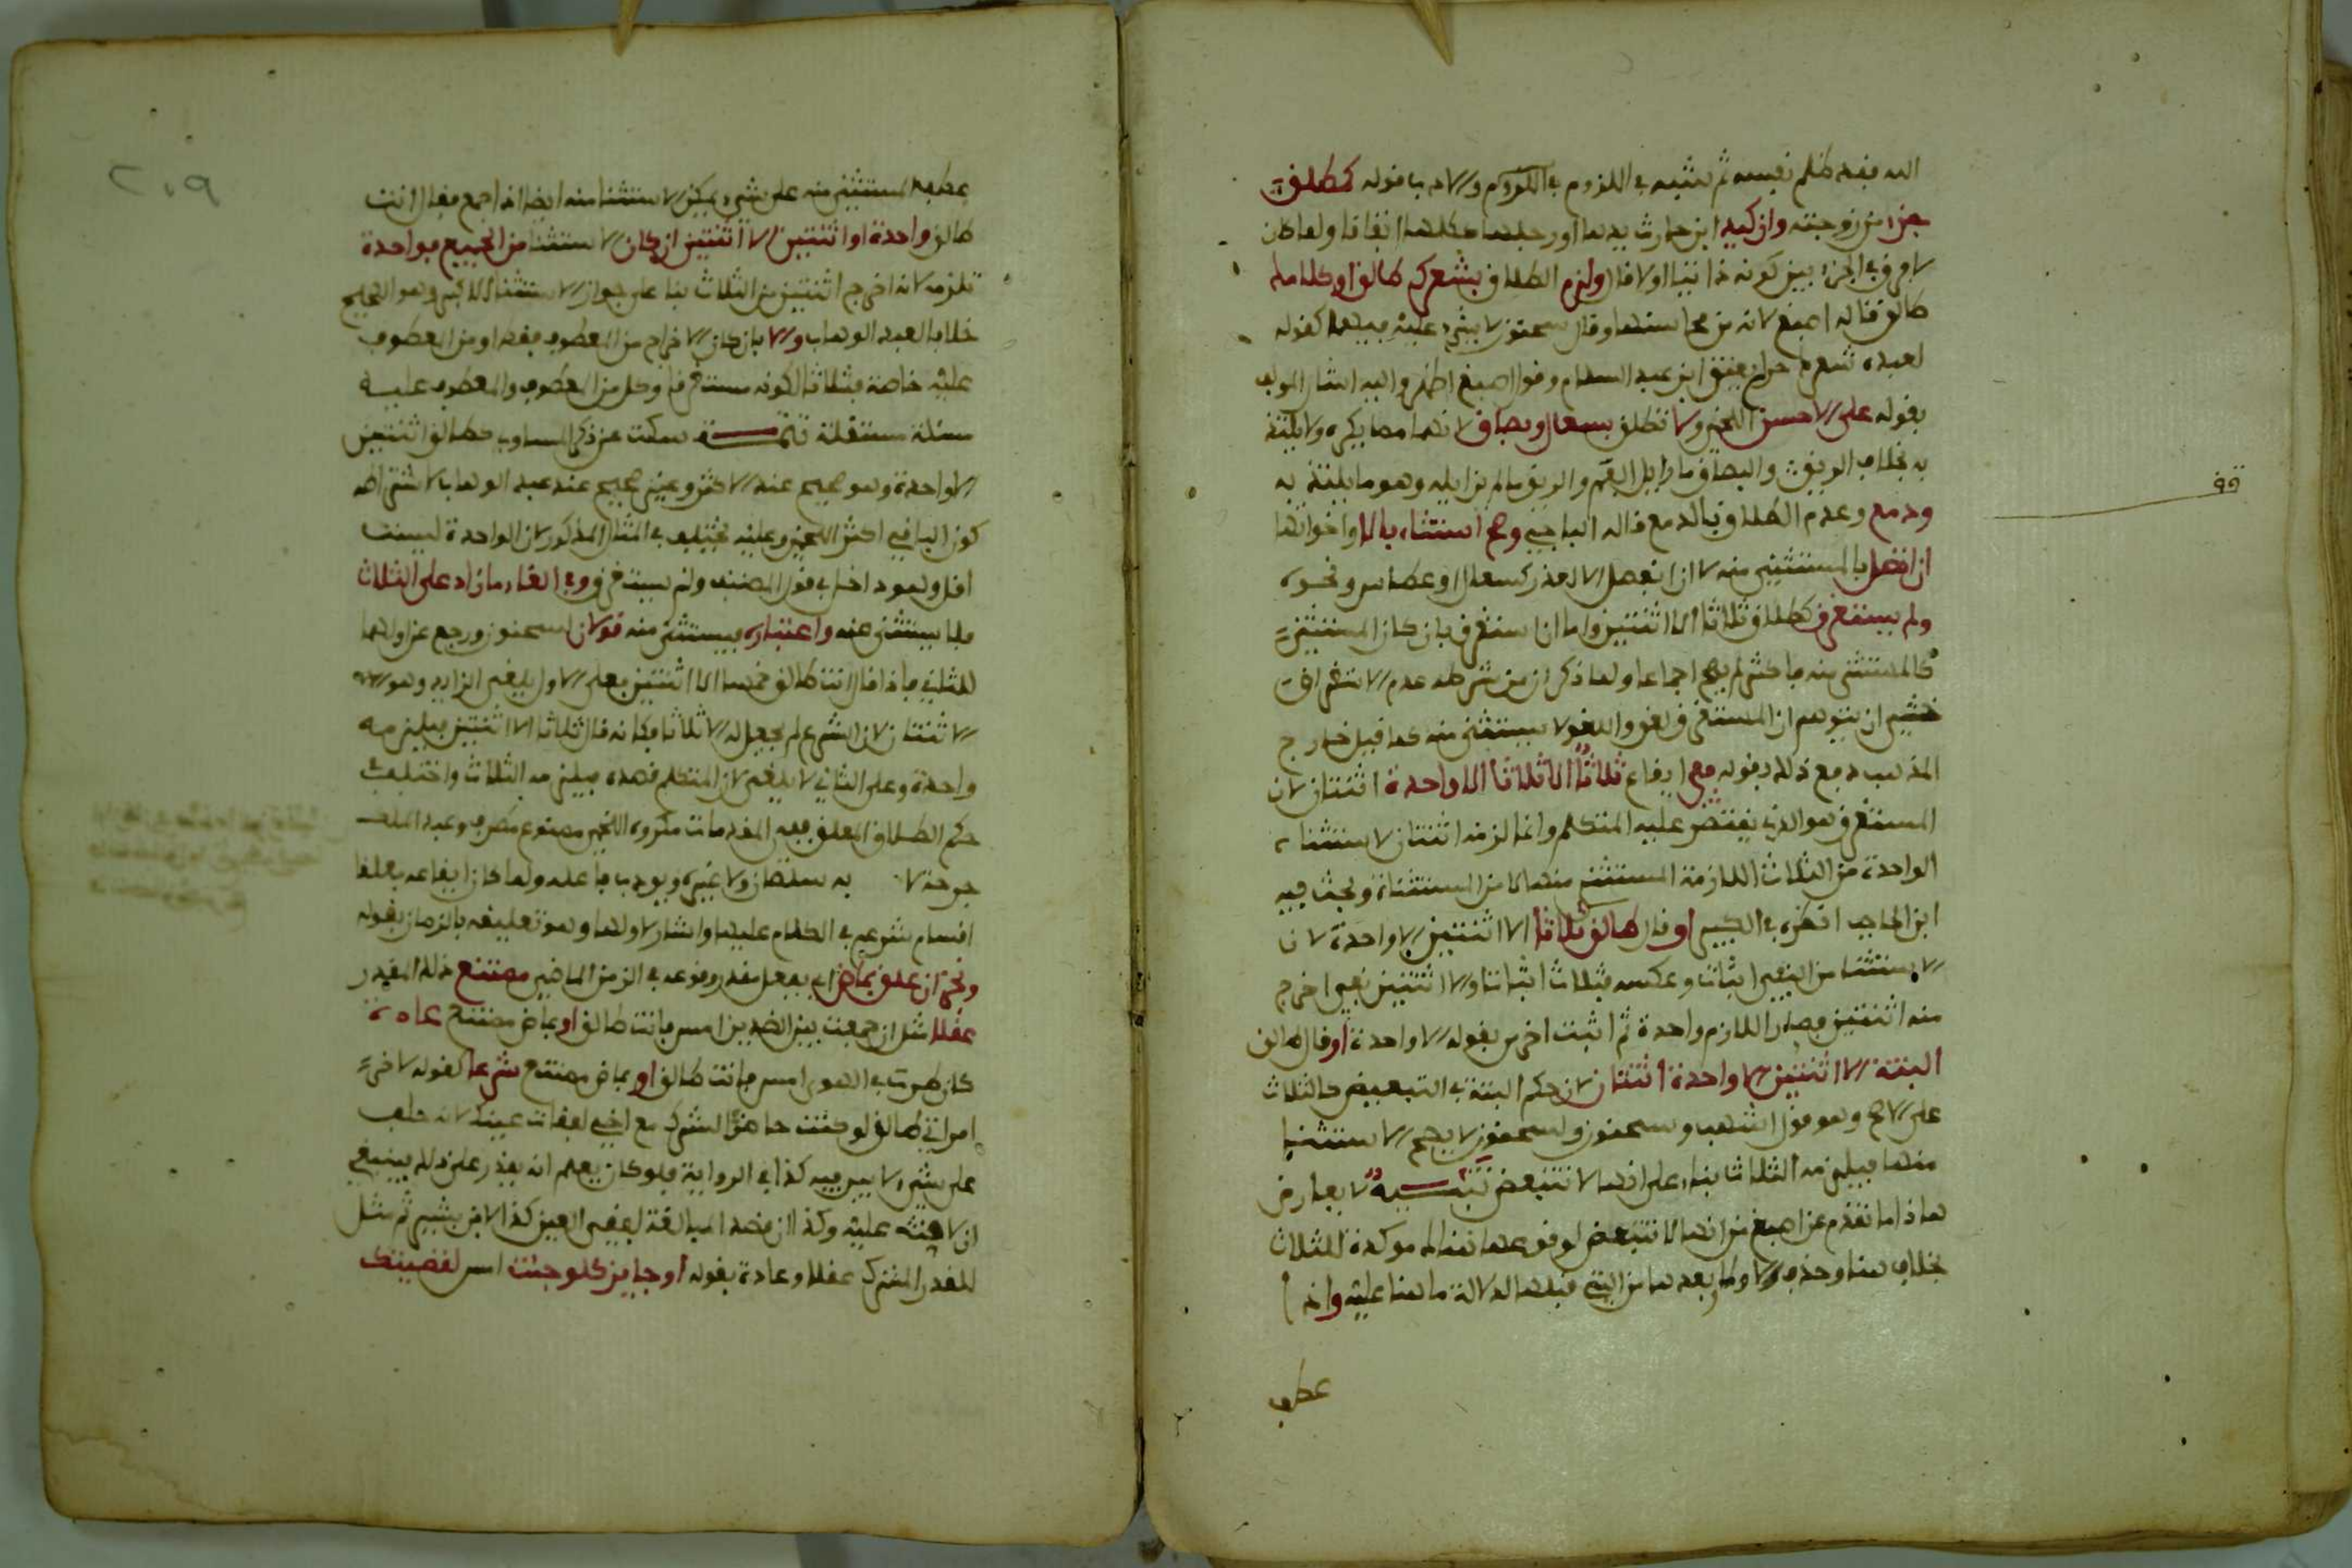 الله فقد ظلم نفسه ثم شبه في اللزوم في اللزوم والادب قوله كمطلق
جزء من زوجته وان كيد ابن حارث يدها او رجلها مثلها اتفاقا ولما كان
لا فرق في الجزء بين كونه ذاتيا اولا قال ولزم الطلاق بشعرك طالق او كلامك
طالق قاله اصبغ لانه من محاسنها وقال سحنون لا شيء عليه فيهما كقوله
لعبده شعرك حر لم يعتق ابن عبد السلام وقول اصبغ اظهر واليه اشار المولف
بقوله على الاحسن اللخمي ولا تطلق بسعال وبصاق لانهما مما يكره ولا يلتذ
به بخلاف الريق والبصاق ما زايل الفم والريق ما لم يزايله وهو ما يلتذ به
ودمع وعدم الطلاق بالدمع قاله الباجي وصح استثناء بالا واخواتها
ان اتصل بالمستثنى منه لا ان انفصل الا لعذر كسعال او عطاس ونحوه
ولم يستغرق كطالق ثلاثا الا اثنتين واما ان استغرق بان كان المستثنى
كالمستثنى منه فاكثر لم يصح اجماعا ولما ذكر ان من شرطه عدم الاستغراق
خشي ان يتوهم ان المستغرق لغو واللغو لا يستثنى منه كما قيل خارج
المذهب دفع ذلك بقوله ففي ايقاع ثلاثا الا ثلاثا الا واحدة اثنتان لان
المستغرق هو الذي يقتصر عليه المتكلم وانما لزمه اثنتان لاستثناء
الواحدة من الثلاث اللازمة المستثنى منها الا من المستثناة وبحث فيه
ابن الحاجب انظره في الكبير او قال طالق ثلاثا الا اثنتين الا واحدة لان
الاستثنا من النفي اثبات وعكسه فثلاث اثباتا والا اثنتين نفي اخرج
منه اثنتين فصار اللازم واحدة ثم اثبت اخرى بقوله الا واحدة او قال طالق
البتة الا اثنتين الا واحدة اثنتان لان حكم البتة في التبعيض كالثلاث
على الاصح وهو قول اشهب وسحنون ولسحنون لا يصح الاستثنا
منها فيلزمه الثلاث بناء على انها لا تتبعض تنبيه لا يعارض
هذا ما تقدم عن اصبغ من انها لا تتبعض لوقوعها هناك موكدة للثلاث
بخلاف هنا وحذف الا وما بعدها من التي قبلها لدلالة ما هنا عليه وان
عطف
قف
٢٠٩
عطف المستثنى منه على شيء يمكن الاستثنا منه ايضا اذا اجمع فقال انت
طالق واحدة او اثنتين الا اثنتين ان كان الاستثنا من الجميع فواحدة
تلزمه لانه اخرج اثنتين من الثلاث بنا على جواز الاستثنا للاكثر وهو الصحيح
خلافا لعبد الوهاب والا بان كان الاخراج من المعطوف فقط او من المعطوف
عليه خاصة فثلاثا لكونه مستغرقا وكل من المعطوف والمعطوف عليه
مسئلة مستقلة تتمة سكت عن ذكر المساوي كطالق اثنتين
الا واحدة وهو صحيح عند الاكثر وغير صحيح عند عبد الوهاب لاشتراطه
كون الباقي اكثر اللخمي وعليه يختلف في المثال المذكور لان الواحدة ليست
اقل وهو داخل في قول المصنف ولم يستغرق وفي الغاء ما زاد على الثلاث
فلا يستثنى منه واعتباره فيستثنى منه قولان لسحنون ورجع عن اولهما
للثاني فاذا قال انت طالق خمسا الا اثنتين فعلى الاول يلغى الزايد وهو
الاثنتان لان الشرع لم يجعل له الا ثلاثا فكانه قال ثلاثا الا اثنتين فيلزمه
واحدة وعلى الثاني لا يلغى لان المتكلم قصده فيلزمه الثلاث واختلف
حكم الطلاق المعلق ففي المقدمات مكروه اللخمي ممنوع مطرف وعبد الملك
جرحة لا به سلطان ولا غيره ويودب فاعله ولما كان ايقاعه معلقا
اقسام شرع في الكلام عليها واشار لاولها وهو تعليقه بالزمان بقوله
ونجز ان علق بماض اي بفعل مقدر وقوعه في الزمن الماضي ممتنع ذلك المقدر
عقلا مثل ان جمعت بين الضدين امس فانت طالق او بماض ممتنع عادة
كان طرت في الهوى امس فانت طالق او بماض ممتنع شرعا كقوله لاخر
امراتي طالق لو كنت حاضرا لشرك مع اخي لفقات عينك لانه حلف
على شيء لا يبر فيه كذا في الرواية فلو كان يعلم انه يقدر على ذلك فينبغي
ان لا حنث عليه وكذا ان قصد المبالغة لفقي العين كذا لابن بشير ثم مثل
للمقدر المشترك عقلا وعادة بقوله او جايز كلو جئت امس لقضيتك